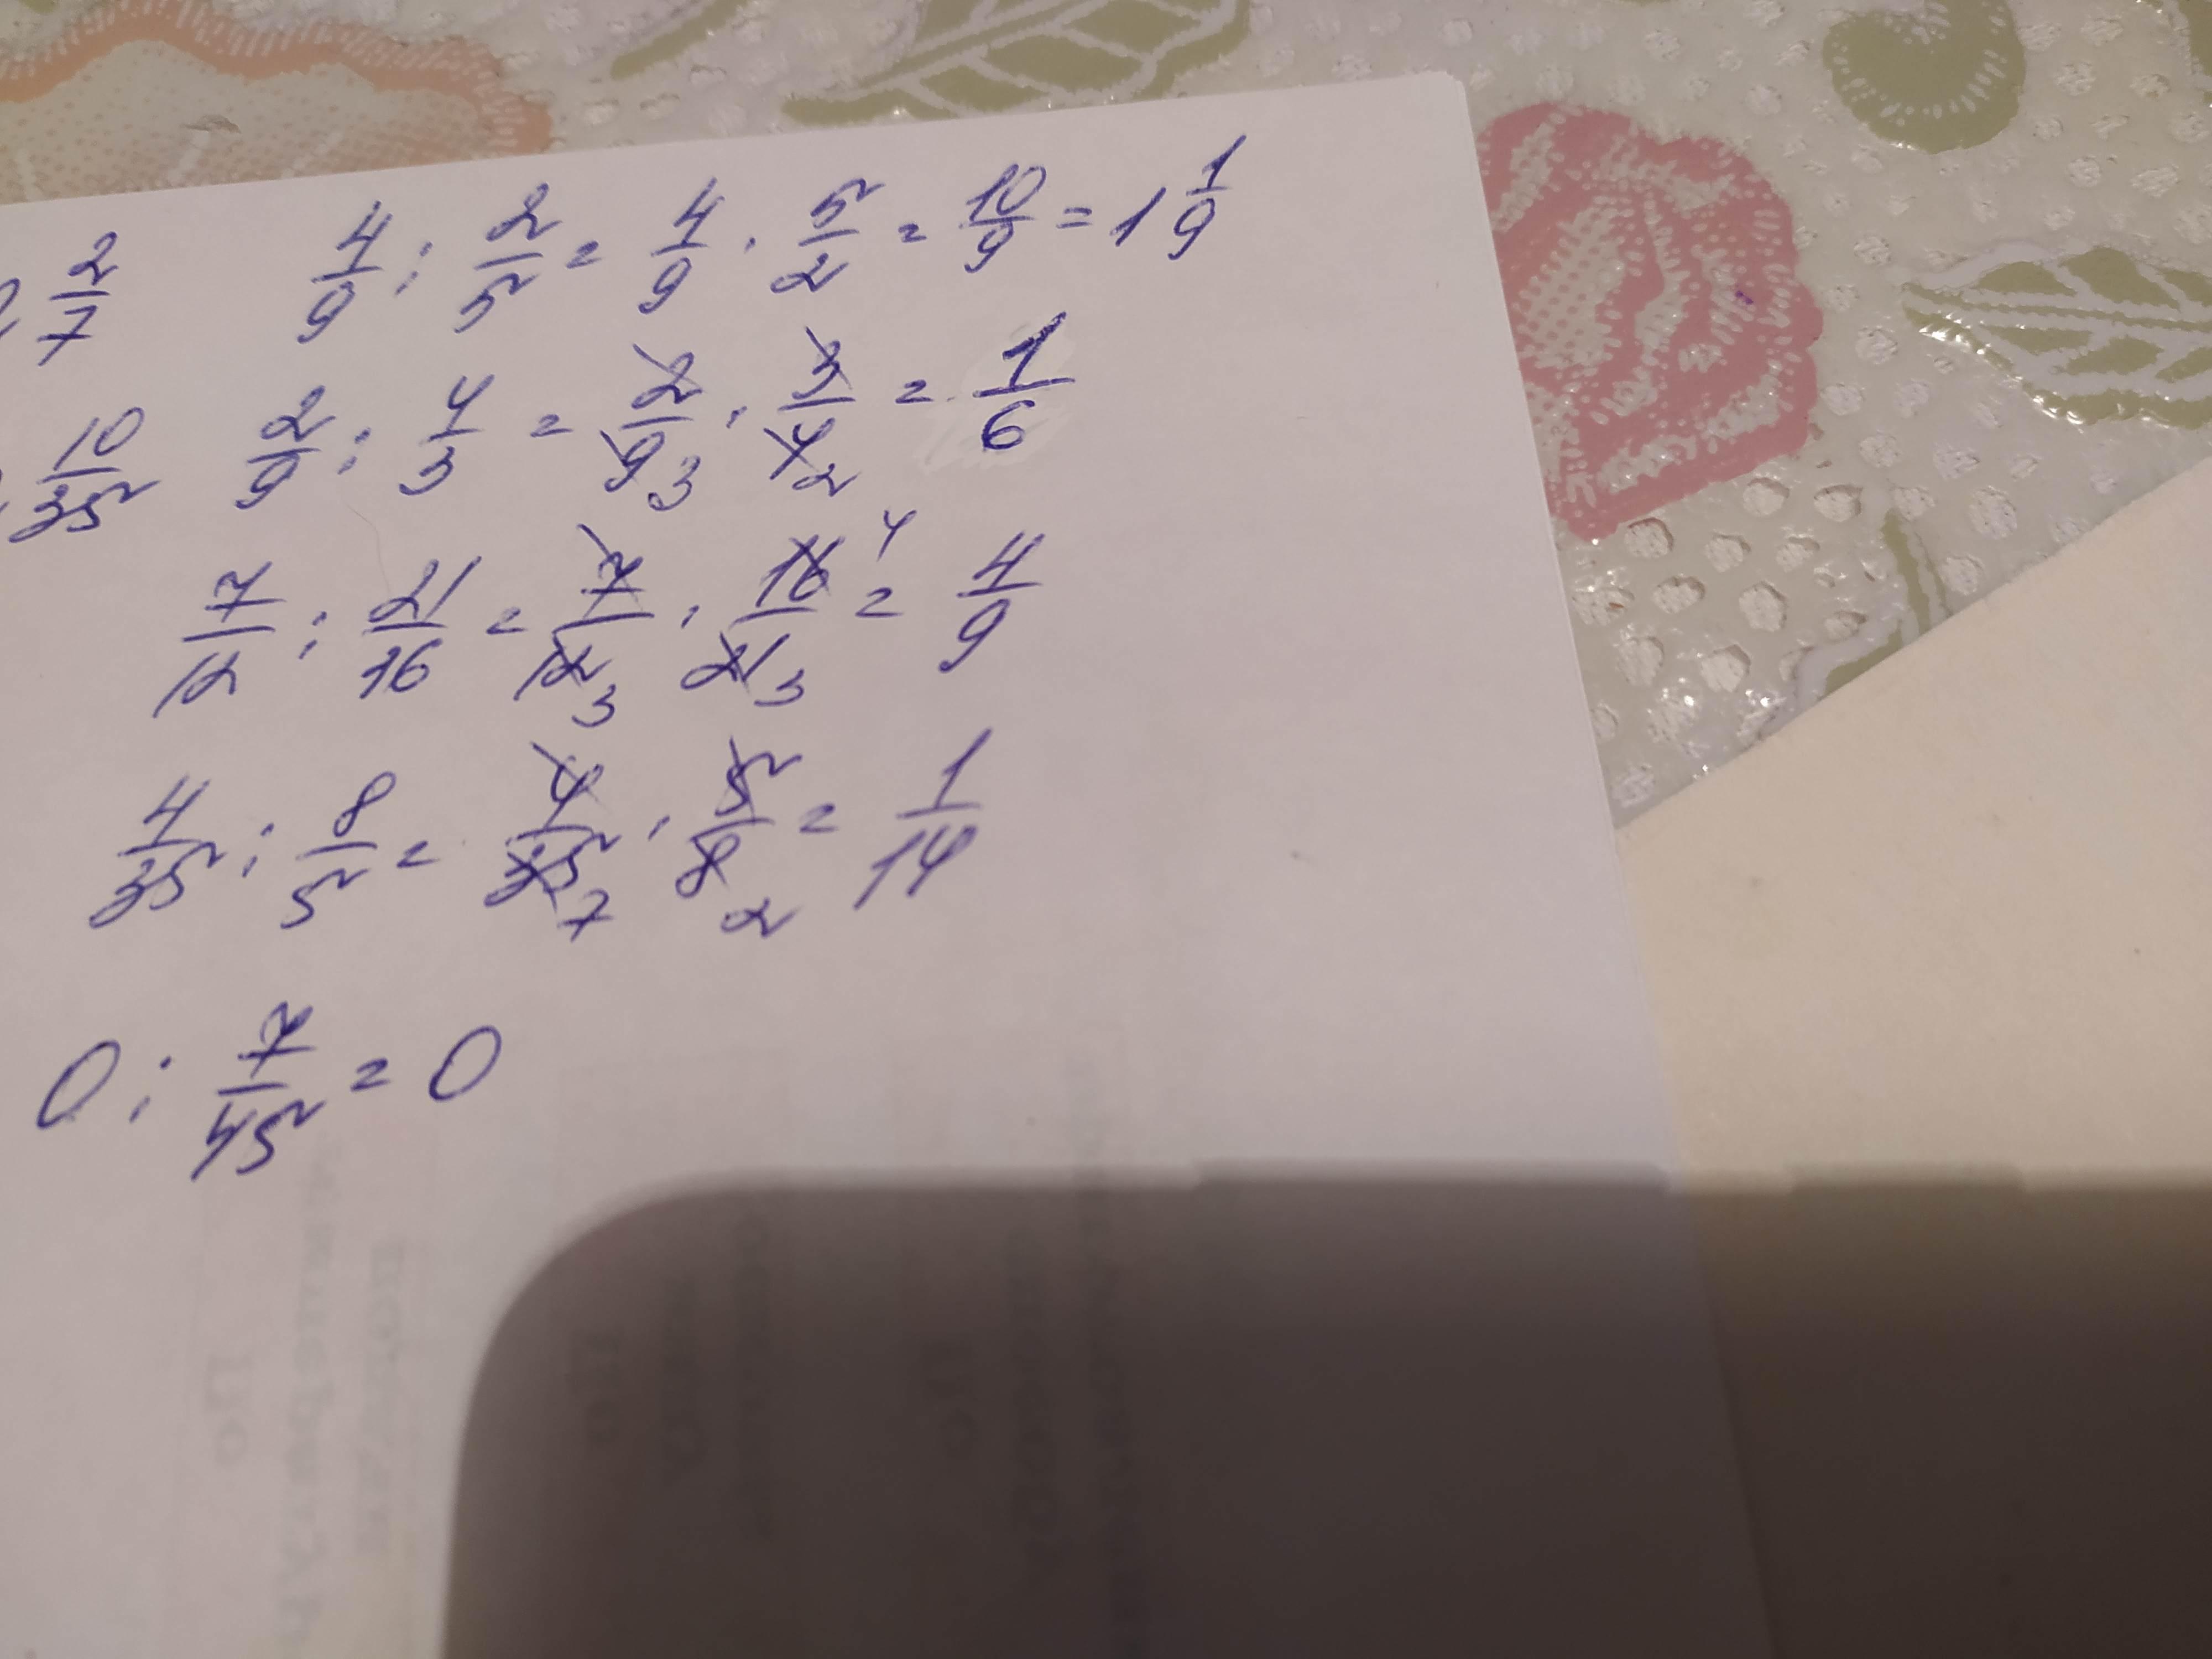 2/7 4/9 : 2/5 = 4/9 · 5/2 = 10/9 = 1 1/9
10/35 2/9 : 4/3 = 2/9 3 · 3/4 2 = 1/6
7/12 : 21/16 = 7/12 3 · 16 4/21 3 = 4/9
4/35 : 8/5 = 4/35 7 · 5/8 2 = 1/14
0 : 7/45 = 0